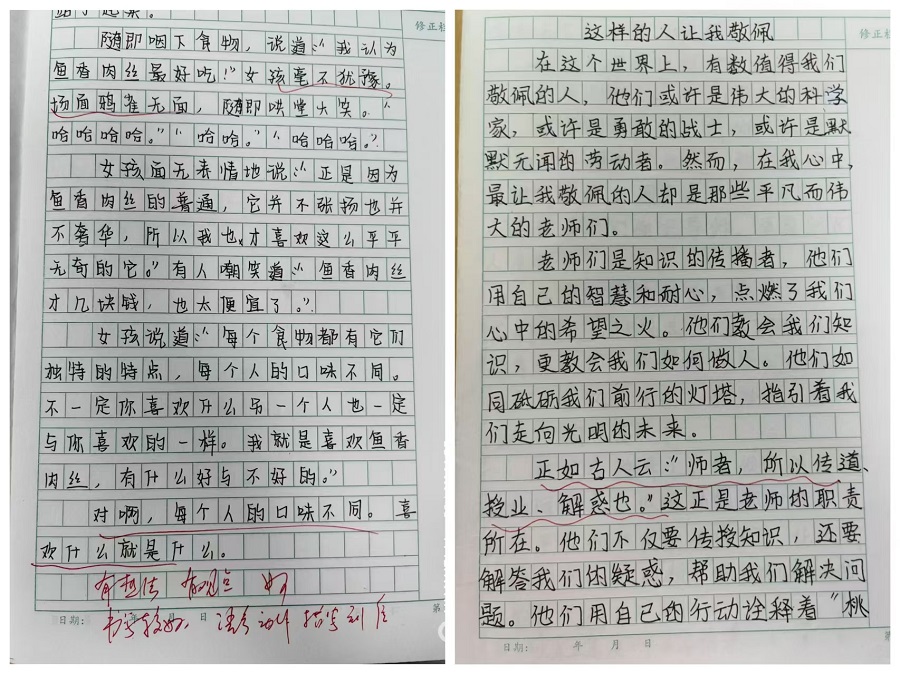 站了起来。
修正栏
随即咽下食物，说道：“我认为
鱼香肉丝最好吃！”女孩毫不犹豫。
场面鸦雀无面，随即哄堂大笑。“
哈哈哈哈。”“哈哈。”“哈哈哈。”
女孩面无表情地说：“正是因为
鱼香肉丝的普通，它并不张扬也并
不奢华，所以我也才喜欢这么平平
无奇的它。”有人嘲笑道：“鱼香肉丝
才几块钱，也太便宜了。”
女孩说道：“每个食物都有它们
独特的特点，每个人的口味不同。
不一定你喜欢什么另一个人也一定
与你喜欢的一样。我就是喜欢鱼香
肉丝，有什么好与不好的。”
对啊，每个人的口味不同。喜
欢什么就是什么。
日期： 年 月 日
这样的人让我敬佩
修正栏
在这个世界上，有数值得我们
敬佩的人，他们或许是伟大的科学
家，或许是勇敢的战士，或许是默
默无闻的劳动者。然而，在我心中，
最让我敬佩的人却是那些平凡而伟
大的老师们。
老师们是知识的传播者，他们
用自己的智慧和耐心，点燃了我们
心中的希望之火。他们教会我们知
识，更教会我们如何做人。他们如
同砥砺我们前行的灯塔，指引着我
们走向光明的未来。
正如古人云：“师者，所以传道、
授业、解惑也。”这正是老师的职责
所在。他们不仅要传授知识，还要
解答我们的疑惑，帮助我们解决问
题。他们用自己的行动诠释着“桃
日期： 年 月 日